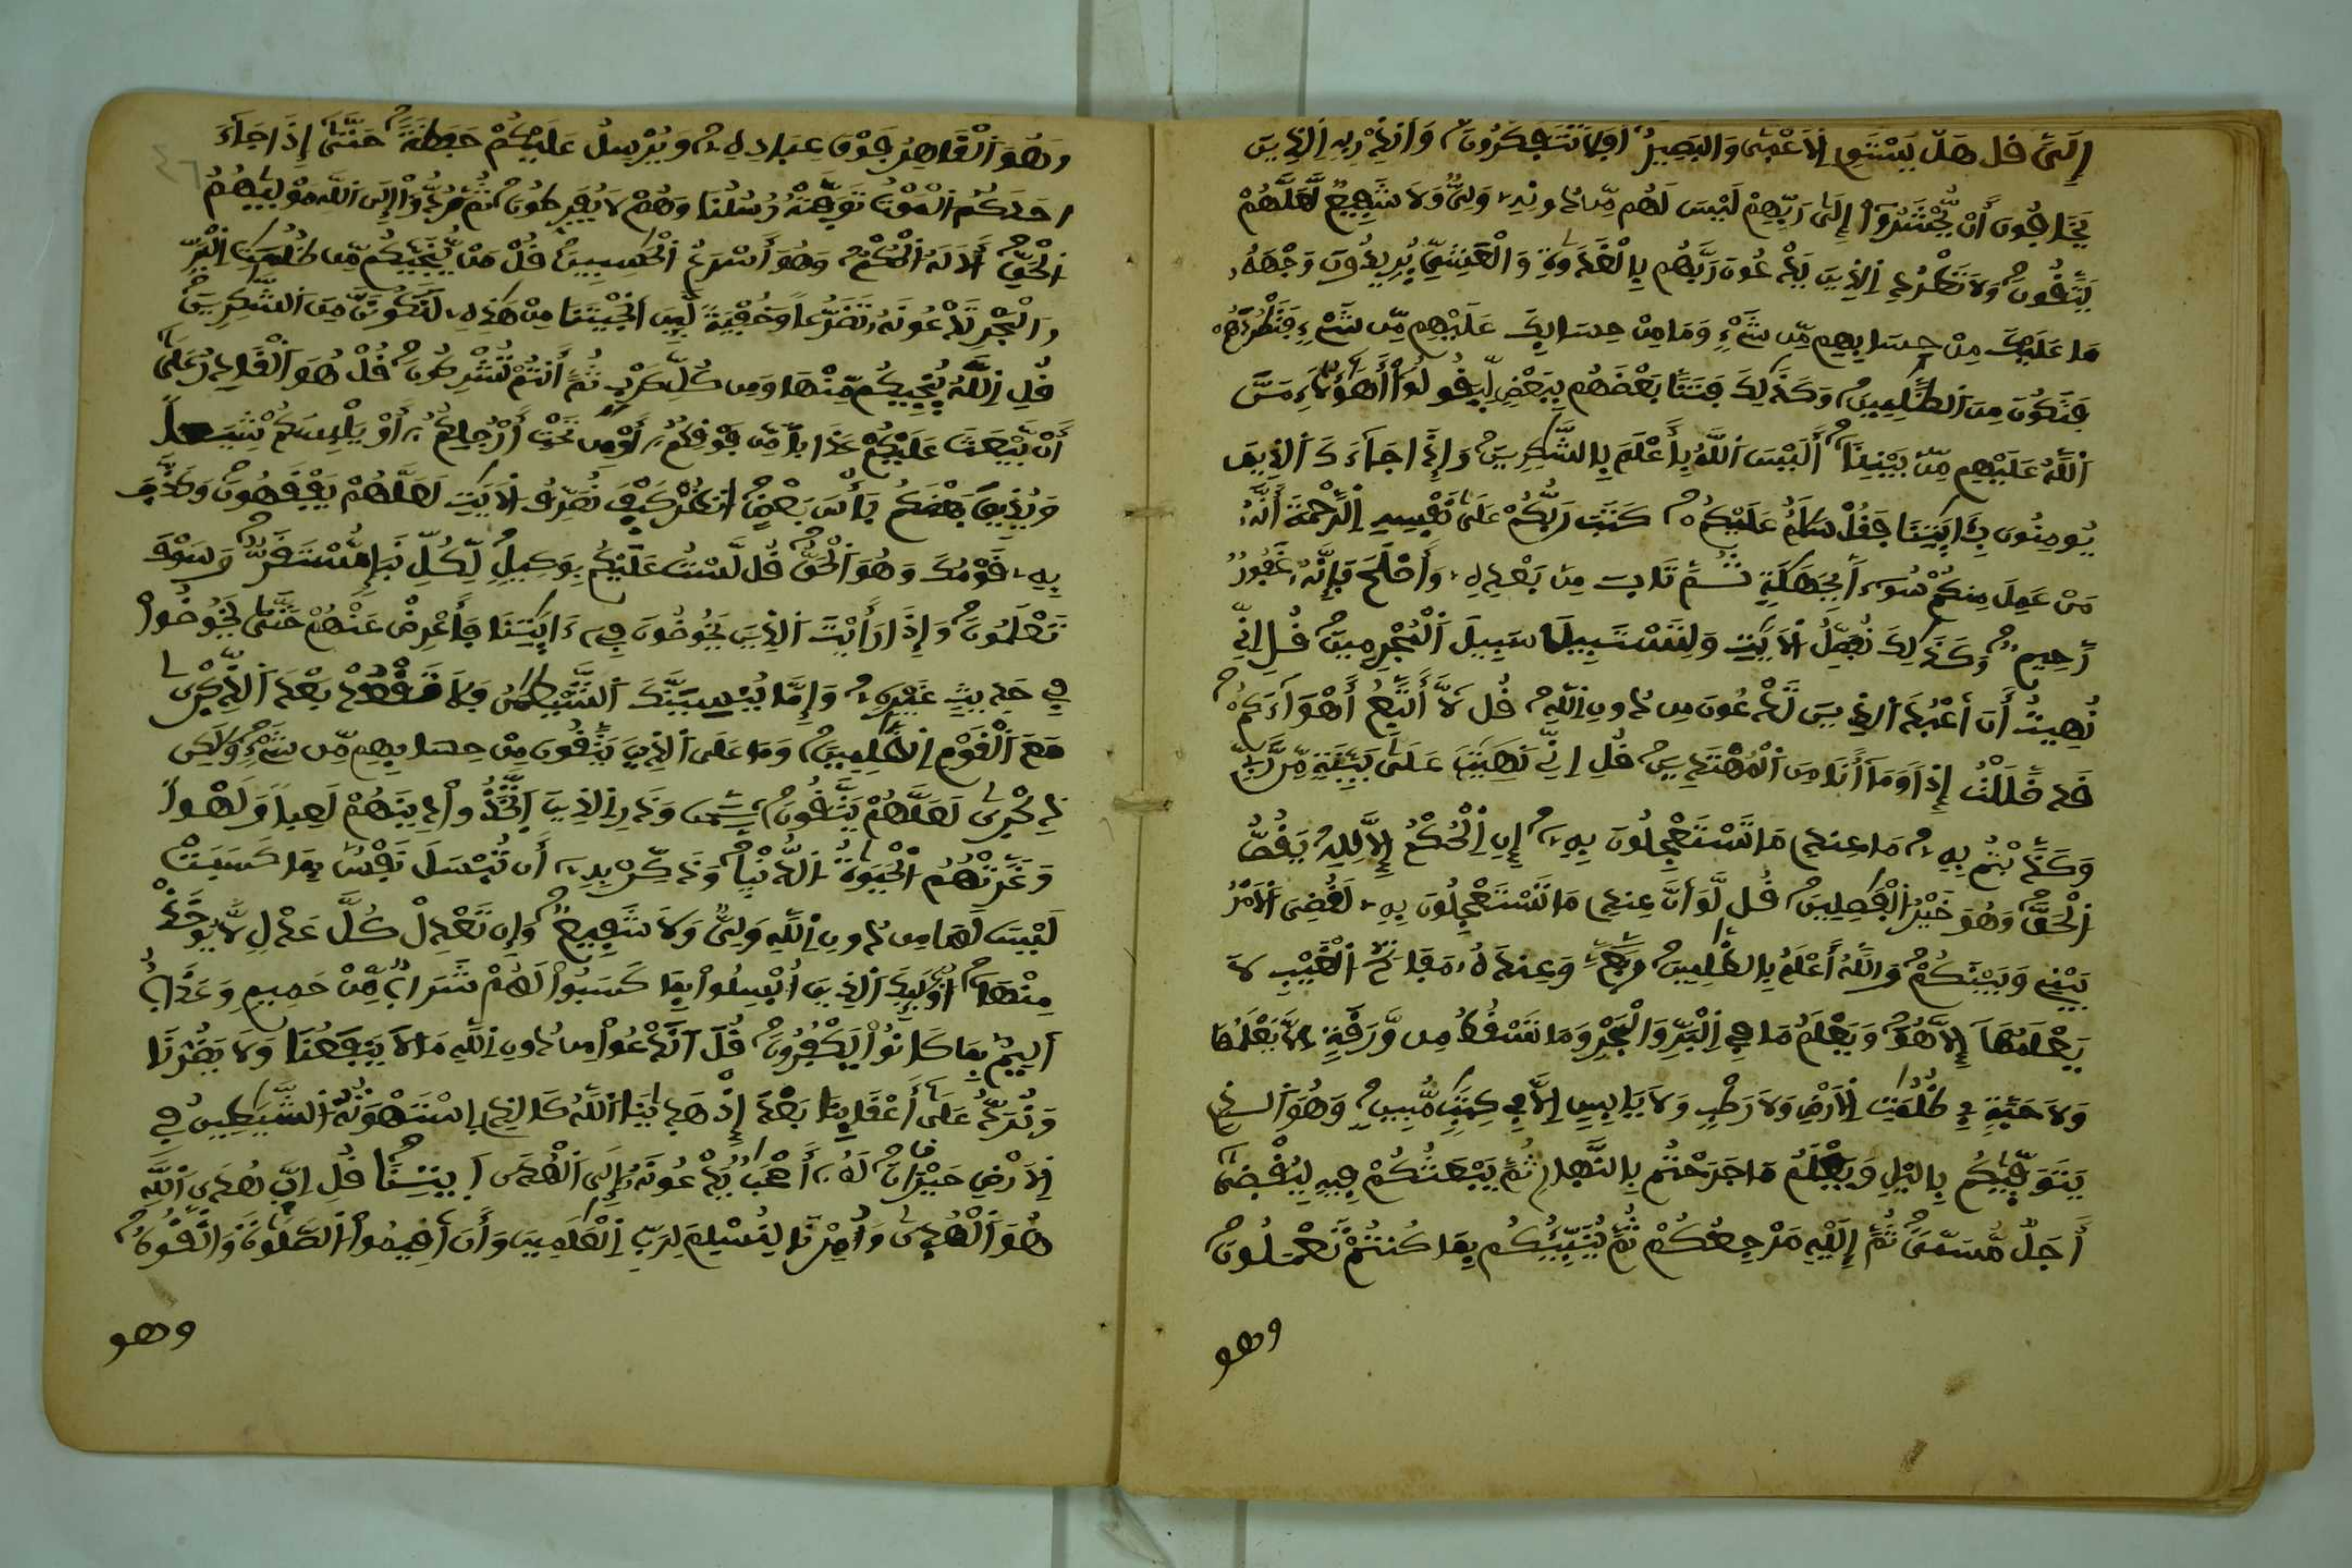 إِلَيَّ قل هَلْ يَسْتَوِي اِلَاعْمَىٰ وَالبَصِيرُ أَفَلَا تَتَفَكَّرُونَ وَأَنذِرْ بِهِ اِلذِينَ
يَخَافُونَ أَنْ يُّحْشَرُوٓاْ إِلَىٰ رَبِّهِمْ لَيْسَ لَهُم مِّن دُونِهِ وَلِيٌّ وَلَا شَفِيعٌ لَّعَلَّهُمْ
يَتَّقُونَ وَلَا تَطْرُدِ اِلذِينَ يَدْعُونَ رَبَّهُم بِالْغَدَوٰةِ وَالْعَشِيِّ يُرِيدُونَ وَجْهَهُ
مَا عَلَيْكَ مِنْ حِسَابِهِم مِّن شَيْءٍ وَمَا مِنْ حِسَابِكَ عَلَيْهِم مِّن شَيْءٍ فَتَطْرُدَهُمْ
فَتَكُونَ مِنَ اَلظَّٰلِمِينَ وَكَذَٰلِكَ فَتَنَّا بَعْضَهُم بِبَعْضٍ لِّيَقُولُوٓاْ أَهَٰٓؤُلَآءِ مَنَّ
اَللَّهُ عَلَيْهِم مِّنۢ بَيْنِنَآ أَلَيْسَ اَللَّهُ بِأَعْلَمَ بِالشَّٰكِرِينَ وَإِذَا جَآءَكَ اَلذِينَ
يُومِنُونَ بِـَٔايَٰتِنَا فَقُلْ سَلَٰمٌ عَلَيْكُمْ كَتَبَ رَبُّكُمْ عَلَىٰ نَفْسِهِ اِلرَّحْمَةَ أَنَّهُ
مَنْ عَمِلَ مِنكُمْ سُوٓءاً بِجَهَٰلَةٍ ثُمَّ تَابَ مِنۢ بَعْدِهِ وَأَصْلَحَ فَإِنَّهُ غَفُورٌ
رَّحِيمٌ وَكَذَٰلِكَ نُفَصِّلُ اُلَايَٰتِ وَلِتَسْتَبِينَ سَبِيلَ اَلْمُجْرِمِينَ قُلِ اِنِّي
نُهِيتُ أَنَ اَعْبُدَ اَلذِينَ تَدْعُونَ مِن دُونِ اِللَّهِ قُل لَّآ أَتَّبِعُ أَهْوَآءَكُمْ
قَد ضَّلَلْتُ إِذاً وَمَآ أَنَا مِنَ اَلْمُهْتَدِينَ قُلِ اِنِّي عَلَىٰ بَيِّنَةٍ مِّن رَّبِّي
وَكَذَّبْتُم بِهِ مَا عِندِي مَا تَسْتَعْجِلُونَ بِهِ إِنِ اِلْحُكْمُ إِلَّا لِلهِ يَقُصُّ
اُلْحَقَّ وَهُوَ خَيْرُ اُلْفَٰصِلِينَ قُل لَّوَ اَنَّ عِندِي مَا تَسْتَعْجِلُونَ بِهِ لَقُضِيَ اَلَامْرُ
بَيْنِي وَبَيْنَكُمْ وَاللَّهُ أَعْلَمُ بِالظَّٰلِمِينَ وَعِندَهُ مَفَاتِحُ اُلْغَيْبِ لَا
يَعْلَمُهَآ إِلَّا هُوَ وَيَعْلَمُ مَا فِي اِلْبَرِّ وَالْبَحْرِ وَمَا تَسْقُطُ مِن وَّرَقَةٍ اِلَّا يَعْلَمُهَا
وَلَا حَبَّةٍ فِي ظُلُمَٰتِ اِلَارْضِ وَلَا رَطْبٍ وَلَا يَابِسٍ اِلَّا فِي كِتَٰبٍ مُّبِينٍ وَهُوَ اَلذِي
يَتَوَفَّيٰكُم بِالَيْلِ وَيَعْلَمُ مَا جَرَحْتُم بِالنَّهَارِ ثُمَّ يَبْعَثُكُمْ فِيهِ لِيُقْضَىٰٓ
أَجَلٌ مُّسَمّىً ثُمَّ إِلَيْهِ مَرْجِعُكُمْ ثُمَّ يُنَبِّئُكُم بِمَا كُنتُمْ تَعْمَلُونَ
وهو
وَهُوَ اَلْقَاهِرُ فَوْقَ عِبَادِهِ وَيُرْسِلُ عَلَيْكُمْ حَفَظَةً حَتَّىٰٓ إِذَا جَآءَ
احَدَكُمُ اُلْمَوْتُ تَوَفَّتْهُ رُسُلُنَا وَهُمْ لَا يُفَرِّطُونَ ثُمَّ رُدُّوٓاْ إِلَى اَللَّهِ مَوْلَيٰهُمُ
اُلْحَقِّ أَلَا لَهُ اُلْحُكْمُ وَهُوَ أَسْرَعُ اُلْحَٰسِبِينَ قُلْ مَنْ يُّنَجِّيكُم مِّن ظُلُمَٰتِ اِلْبَرِّ
وَالْبَحْرِ تَدْعُونَهُ تَضَرُّعاً وَخُفْيَةً لَّئِنَ اَنجَيْتَنَا مِنْ هَٰذِهِ لَنَكُونَنَّ مِنَ اَلشَّٰكِرِينَ
قُلِ اِللَّهُ يُنجِيكُم مِّنْهَا وَمِن كُلِّ كَرْبٍ ثُمَّ أَنتُمْ تُشْرِكُونَ قُلْ هُوَ اَلْقَادِرُ عَلَىٰٓ
أَنْ يَّبْعَثَ عَلَيْكُمْ عَذَاباً مِّن فَوْقِكُمُ أَوْ مِن تَحْتِ أَرْجُلِكُمُ أَوْ يَلْبِسَكُمْ شِيَعاً
وَيُذِيقَ بَعْضَكُم بَأْسَ بَعْضٍ اُنظُرْ كَيْفَ نُصَرِّفُ اُلَايَٰتِ لَعَلَّهُمْ يَفْقَهُونَ وَكَذَّبَ
بِهِ قَوْمُكَ وَهُوَ اَلْحَقُّ قُل لَّسْتُ عَلَيْكُم بِوَكِيلٍ لِّكُلِّ نَبَإٍ مُّسْتَقَرٌّ وَسَوْفَ
تَعْلَمُونَ وَإِذَا رَأَيْتَ اَلذِينَ يَخُوضُونَ فِي ءَايَٰتِنَا فَأَعْرِضْ عَنْهُمْ حَتَّىٰ يَخُوضُواْ
فِي حَدِيثٍ غَيْرِهِ وَإِمَّا يُنسِيَنَّكَ اَلشَّيْطَٰنُ فَلَا تَقْعُدْ بَعْدَ اَلذِّكْرَىٰ
مَعَ اَلْقَوْمِ اِلظَّٰلِمِينَ وَمَا عَلَى اَلذِينَ يَتَّقُونَ مِنْ حِسَابِهِم مِّن شَيْءٍ وَلَٰكِن
ذِكْرَىٰ لَعَلَّهُمْ يَتَّقُونَ وَذَرِ اِلذِينَ اَتَّخَذُواْ دِينَهُمْ لَعِباً وَلَهْواً
وَغَرَّتْهُمُ اُلْحَيَوٰةُ اُلدُّنْيَا وَذَكِّرْ بِهِ أَن تُبْسَلَ نَفْسٌۢ بِمَا كَسَبَتْ
لَيْسَ لَهَا مِن دُونِ اِللَّهِ وَلِيٌّ وَلَا شَفِيعٌ وَإِن تَعْدِلْ كُلَّ عَدْلٍ لَّا يُوخَذْ
مِنْهَآ أُوْلَٰٓئِكَ اَلذِينَ أُبْسِلُواْ بِمَا كَسَبُواْ لَهُمْ شَرَابٌ مِّنْ حَمِيمٍ وَعَذَابٌ
اَلِيمٌ بِمَا كَانُواْ يَكْفُرُونَ قُلَ اَنَدْعُواْ مِن دُونِ اِللَّهِ مَا لَا يَنفَعُنَا وَلَا يَضُرُّنَا
وَنُرَدُّ عَلَىٰٓ أَعْقَابِنَا بَعْدَ إِذْ هَدَيٰنَا اَللَّهُ كَالذِي اِسْتَهْوَتْهُ اُلشَّيَٰطِينُ فِي
اِلَارْضِ حَيْرَانَ لَهُ أَصْحَٰبٌ يَدْعُونَهُ إِلَى اَلْهُدَى اَيتِنَا قُلِ اِنَّ هُدَى اَللَّهِ
هُوَ اَلْهُدَىٰ وَأُمِرْنَا لِنُسْلِمَ لِرَبِّ اِلْعَٰلَمِينَ وَأَنَ اَقِيمُواْ اُلصَّلَوٰةَ وَاتَّقُوهُ
وهو